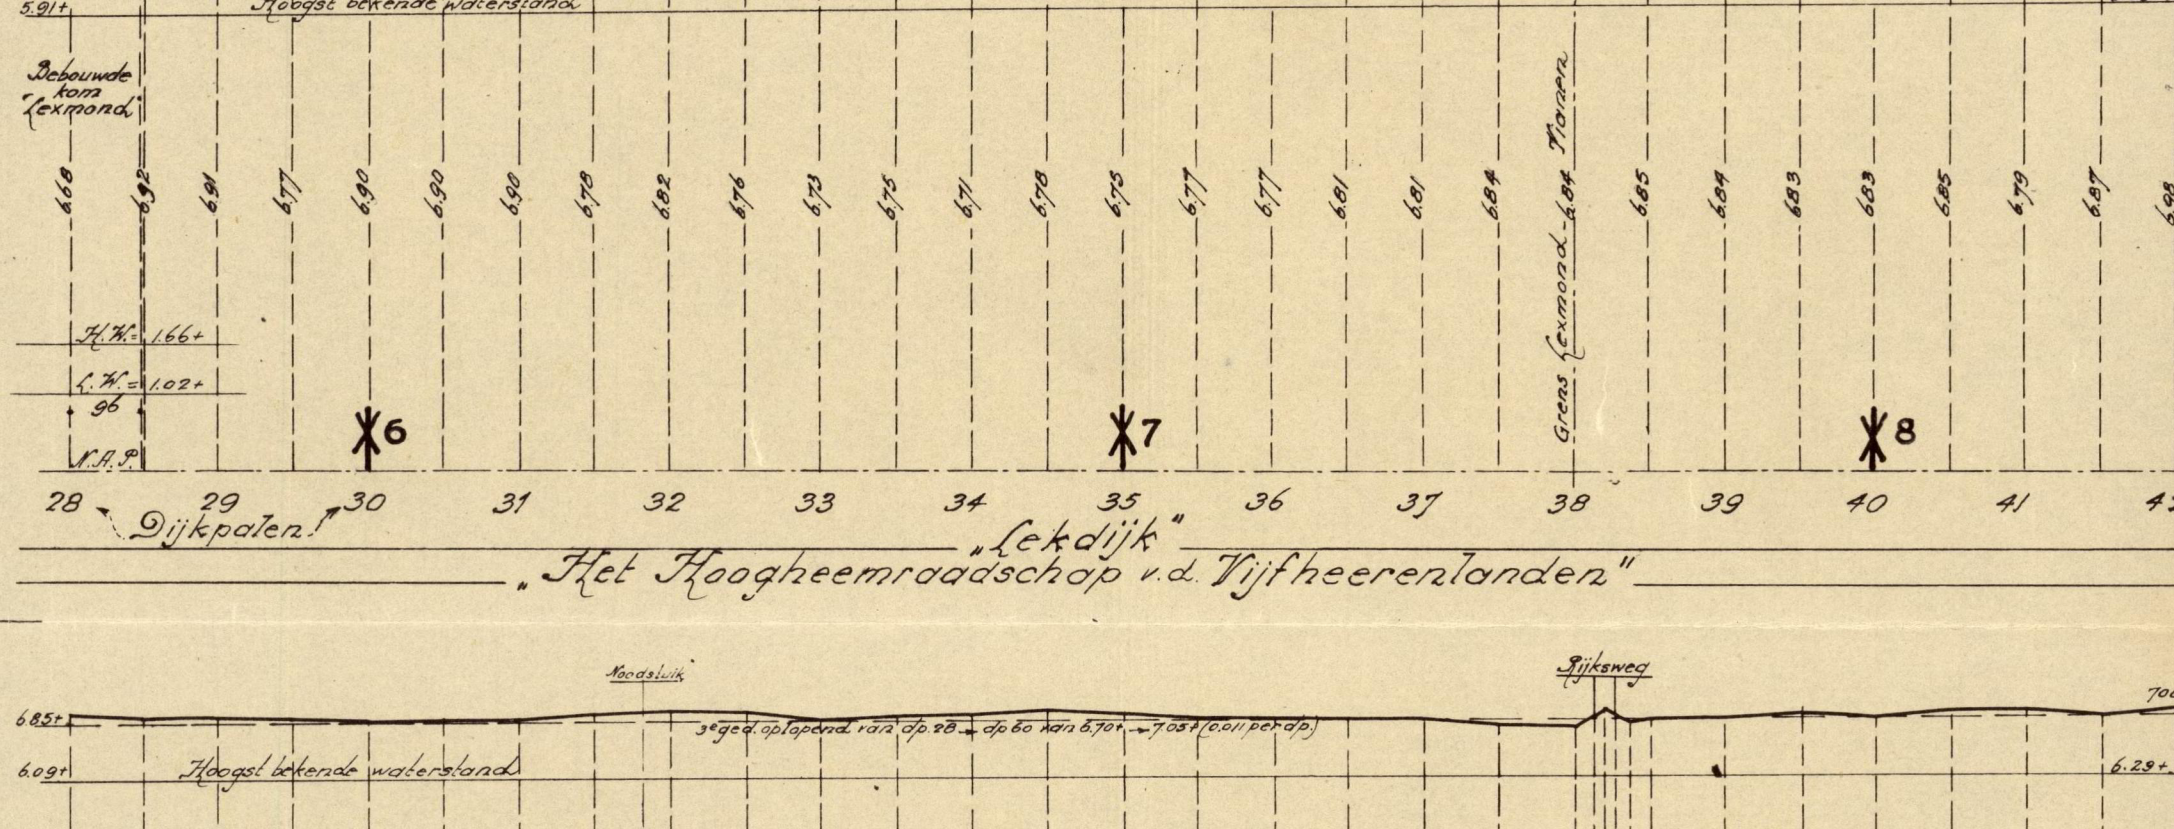 5.91+
Hoogst bekende waterstand
Bebouwde
kom
"Lexmond"
6.68
6.92
6.91
6.77
6.90
6.90
6.90
6.78
6.82
6.76
6.73
6.75
6.71
6.78
6.75
6.77
6.77
6.81
6.81
6.84
Grens Lexmond - 6.84 Vianen
6.85
6.84
6.83
6.83
6.85
6.79
6.87
6.98
H.W.= 1.66+
L.W.= 1.02+
96
N.A.P.
6
7
8
28 29 30 31 32 33 34 35 36 37 38 39 40 41
Dijkpalen
„Lekdijk"
„Het Hoogheemraadschap v.d. Vijfheerenlanden"
Noodsluik
Rijksweg
6.85+
3e ged. oplopend van dp. 28 → dp 60 van 6.70+ → 7.05+ (0.011 per dp.)
6.09+
Hoogst bekende waterstand
6.29+